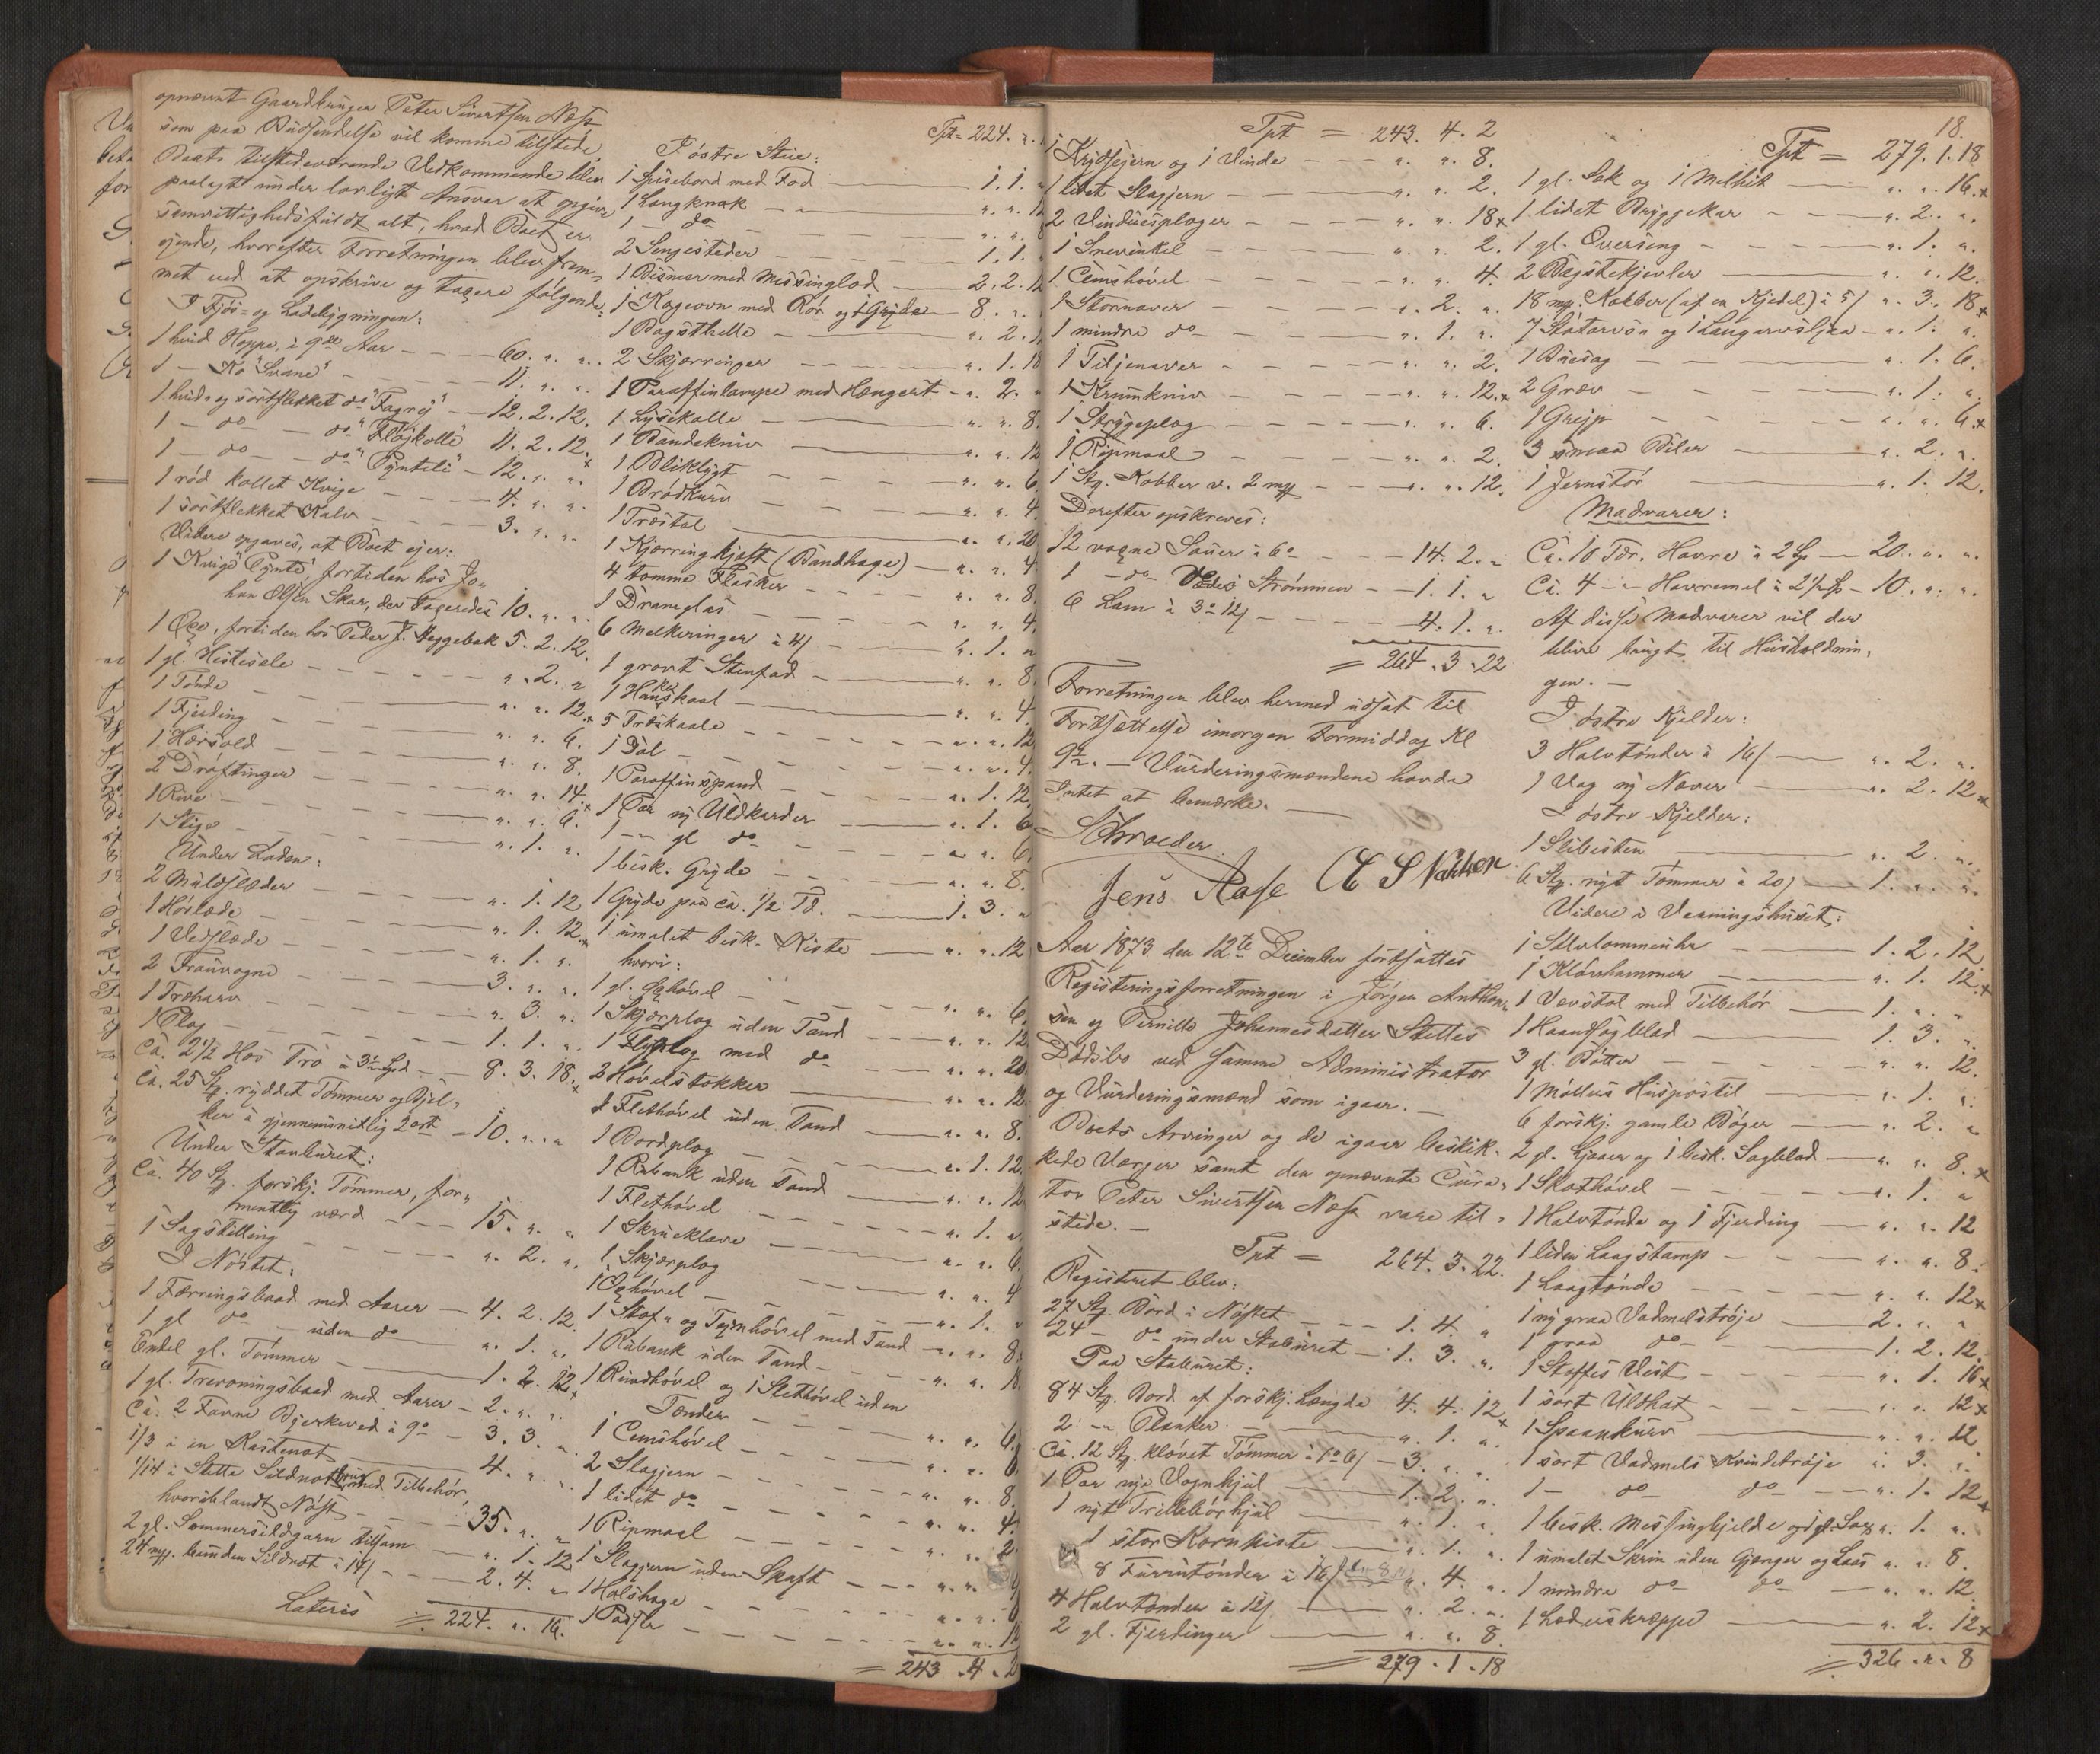 opnævnt Gaardbruger Peter Sivertsen Næss
som paa Budsendelse vil komme tilstede
Boets tilstedeværende Vedkommende blev
paalagt under lovligt Ansvar at opgive
samvittighedsfuldt alt, hvad Boet er
ejende, hvorefter Forretningen blev frem-
met ved at opskrive og taxere følgende:
I Fjøs- og Ladebygningen:
1 hvid Hoppe, i 9de Aar - - - 60. " "
1 - Ko "Svane" - - - 11. " "
1 hvid- og sortflekket do "Fagrej" - - 12. 2. 12.
1 - do - - do "Fløjkolle" 11. 2. 12.
1 - do - - do "Pynteli" - 12. " "
1 rød kollet Kvige - - - 4. " "
1 sortflekket Kalv - - - 3. " "
Videre opgaves, at Boet ejer:
1 Kvige "Pynte" fortiden hos Jo-
han Olsen Skar, der taxeredes 10. " "
1 Oxe, fortiden hos Peder J. Heggebak 5. 2. 12.
1 gl. Hestesele - - - " 2. "
1 Tønde - - - " " 12.
1 Fjerding - - - " " 6.
1 Hærsold - - - " " 8.
2 Drøftinger - - - " " 14.
1 Rive - - - " " 6.
1 Stige - - - " 1. "
Under Laden:
2 Muldslæder - - - " 1. 12
1 Høslæde - - - " 1. 12.
1 Vedslæde - - - " 1. "
2 Trauvogne - - - 3. " "
1 Træharv - - - " 3. "
1 Plog - - - 1. 1. "
Ca. 2 1/2 Hos Trø - - 8. 3. 18.
Ca. 25 Stk. ryddet Tømmer og Bjel-
ker à gjennemsnitlig 2 ort - 10. " "
Under Stabburet:
Ca. 40 Stk. forskj. Tømmer, for-
mentlig værd - - - 15. " "
1 Sagstilling - - - " 2. "
I Nøstet:
1 Færringsbaad med Aarer - 4. 2. 12.
1 gl do - uden do - " 1. "
Endel gl. Tømmer - - 1. 2. 12
1 gl. Treroningsbaad med Aarer - 2. " "
Ca. 2 Favne Bjerkeved à 9o - 3. 3. "
1/3 i en Kastenot - - 4. " "
1/14 i Slette Sildnotbrug med Tilbehør,
hvoriblandt Nøst - - - 35. " "
2 gl. Sommersildgarn tilsam. - " 1. 12
24 mp. Sildnot à 14/ - - 2. 4. "
Lateris = 224. " 16.
Tpt = 224. "
I østre Stue:
1 Spisebord med Fod - 1. 1. "
1 Langkrak - - " " 12
1 - do - " "
2 Sengesteder - 1. 1.
1 Bismer med Messinglod - 2. 2. 12
1 Kogeovn med Rør og 1 Gryde - 8. "
1 Bagsthelle - " 2. 1
2 Skjærringer - - " 1. 18
1 Paraffinlampe med Hængert - " 2. "
1 Lysekolle - " " 8.
1 Bandekniv - " " 12
1 Bliklygt - " " 6
1 Brødkurv - " " 4.
1 Træstol - " " 20
1 Kjærringkjæft (Bandhage) - " " 4.
4 tomme Flasker - " " 8.
1 Dramglas - " " 4.
6 Melkeringer à 4/ - " 1. "
1 gravt Stenfad - " " 8.
1 Hankeskaal - " " 4
5 Træskaale - " " 12
1 Dal - " " 4.
1 Paraffinspand - " 1. 12
1 Par ny Uldkarder - " 1. 6
1 - gl do - " " 6.
1 besk. Gryde - " " 8.
1 Gryde paa ca. 1/2 Td. - 1. 3. "
1 umalet besk. Kiste - " " 12
hvori:
1 gl. Oxhøvel - " " 6.
1 Skjærplog uden Tand - " " 12
1 Flyplog med do - " " 20
2 Høvelstokker - " " 12
1 Flethøvel uden Tand - " " 8.
1 Bordplog - " 1. 12
1 Rubank uden Tand - " " 12
1 Flethøvel - " 1. "
1 Skrueklave - " " 6
1 Skjærplog - " " 4
1 Oxhøvel - " 1. "
1 Staf- og Tejnhøvel med Tand - " " 8.
1 Rubank uden Tand - " " 18
1 Rundhøvel og 1 Slethøvel uden
Tænder - - - " " 6
1 Cemshøvel - " " 6
2 Slagjern - " " 8
1 lidet do - " " 4.
1 Ripmaal - " " 2
1 Slagjern uden Skaft - - "
1 Halshage - " "
1 Passer - " " 12
= 243. 4. 2
Tpt = 243. 4. 2
1 Krydsejern og 1 Vinde - " " 8.
1 lidet Slagjern - " " 2.
2 Vinduesploger - " " 18
1 Snevinkel - " " 2.
1 Cemshøvel - " " 4.
1 Stornaver - " 2. "
1 mindre do - " 1. "
1 Tiljenaver - " " 2.
1 Krumkniv - " " 12
1 Strygeplog - " " 6.
1 Ripmaal - " " 2.
1 Stk. Kobber v. 2 mp - " " 12.
Derefter opskreves:
12 voxne Sauer à 6o - 14. 2. "
1 - do Veder Strømmen - 1. 1. "
6 Lam à 3o 12/ - 4. 1. "
= 264. 3. 22
Forretningen blev hermed udsat til
Fortsættelse imorgen Formiddag Kl
9 1/2. - Vurderingsmændene havde
Intet at bemærke. -
Schroeder
Jens Aase
Aar 1873 den 12te December fortsattes
Registeringsforretningen i Jørgen Anthon-
sen og Pernille Johannesdatter Slettes
Dødsbo ved samme Administrator
og Vurderingsmænd som igaar. -
Boets Arvinger og de igaar beskik-
kede Værger samt den opnævnte Cura-
tor Peter Sivertsen Næss vare til-
stede. -
Tpt = 264. 3. 22.
Registreret blev:
27 Stk. Bord i Nøstet - - 1. 4. "
24 - do under Stabburet - 1. 3. "
Paa Stabburet:
84 Stk. Bord af forskj. Længde 4. 4. 12
2 - Planker - " 1. "
Ca. 12 Stk. kløvet Tømmer à 1o 6/ - 3. " "
1 Par nye Vognhjul - 1. 2. "
1 nyt Trillebørhjul - " 1. "
1 stor Kornkiste - " 1. "
8 Furutønder à 16/ " 4. "
4 Halvtønder à 12/ - " 2. "
2 gl. Fjerdinger - " " 8.
= 279. 1. 18
18.
Tpt = 279. 1. 18
1 gl. Sek og 1 Melbit " " 16.
1 lidet Bryggekar - " 2. "
1 gl. Overseng - " 1. "
2 Bagstekjevler - " " 12.
18 mp. Kobber (af en Kjedel) à 5/ " 3. 18
7 Stutorv og 1 Langorv - " 1. "
1 Buesag - " 1. 6.
2 Græv - " 1. "
1 Grejp - " " 6.
3 smaa Biler - " 2. "
1 Jernstør - " 1. 12.
Madvarer:
Ca. 10 Tdr. Havre à 2 Sp - 20. " "
Ca. 4 - Havremel à 2 1/2 Sp - 10. " "
Af disse Madvarer vil der
blive brugt til Husholdnin-
gen. -
I østre Kjelder:
3 Halvtønder à 16/ - " 2. "
1 Vog ny Næver - " 2. 12
I østre Kjelder:
1 Slibesten - " 2. "
6 Stk. nyt Tømmer à 20/ - 1. " "
Videre i Vaaningshuset:
1 Sølvlommeuhr - 1. 2. 12
1 Kløvhammer - " 1. 12.
1 Vævstol med Tilbehør - 1. " "
1 Haandsagblad - 1. 3. "
3 gl. Bøtter - " " 12.
1 Møllers Huspostil - " 1. "
6 forskj. gamle Bøger - " 2. "
2 gl. Ljaaer og 1 besk. Sagblad - " " 8.
1 Skothøvel - " 1. "
1 Halvtønde og 1 Fjerding - " " 12
1 liden Laagstamp - " " 8.
1 Laagtønde - " " 12
1 ny graa Vadmelstrøje - 2. " "
1 graa do - 1. 2. 12.
1 Stoffes Vest - " 1. 16
1 sort Uldhat - " " 12
1 Spaankurv - " " 12
1 sort Vadmels Kvindetrøje " 3. "
1 - do do - " 1. 12
1 besk. Messingkjelde og 1 gl. Sax " 1. "
1 umalet Skrin uden Gjænger og Laas " " 8.
1 mindre do do - " " 12
1 Læderskræppe - " 2. 12
= 326. " 8